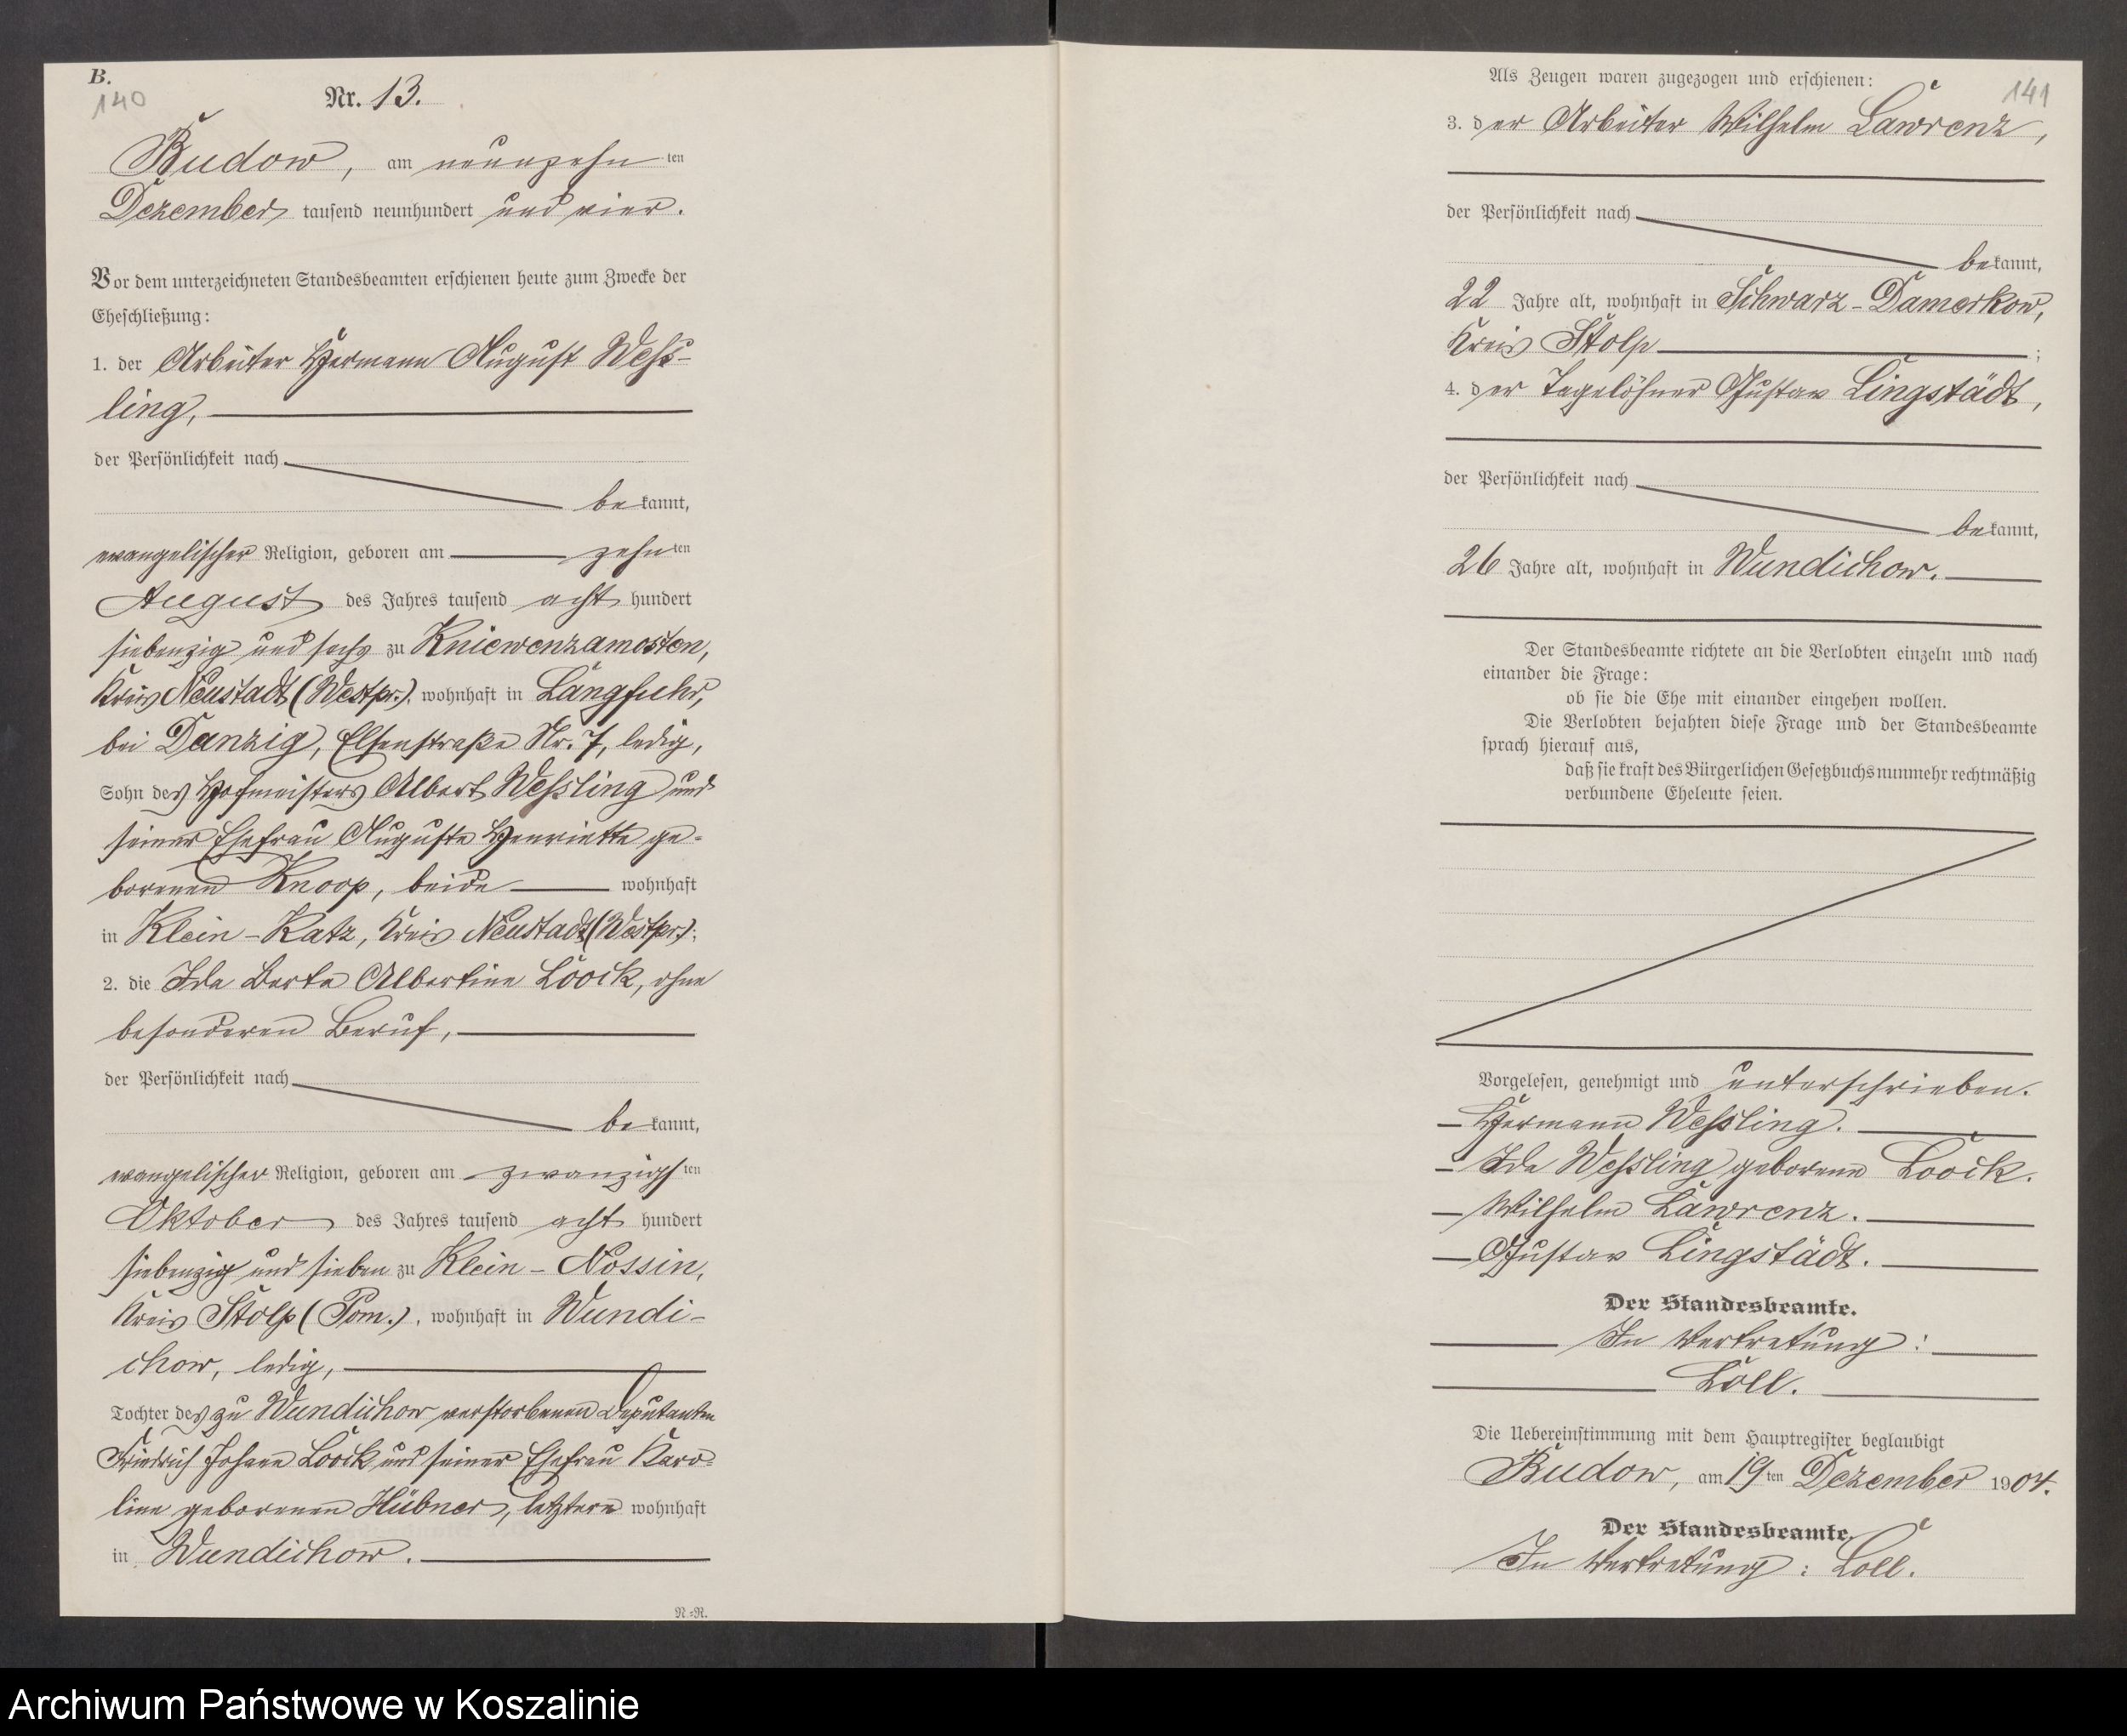 B.
140
Nr. 13.
Budow, am neunzehnten
Dezember tausend neunhundert und vier.
Vor dem unterzeichneten Standesbeamten erschienen heute zum Zwecke der
Eheschließung:
1. der Arbeiter Hermann August Wess-
ling,
der Persönlichkeit nach
bekannt,
evangelischer Religion, geboren am zehnten
August des Jahres tausend achthundert
siebenzig und sechs zu Kniewenzamosten,
Kreis Neustadt (Westpr.), wohnhaft in Langfuhr,
bei Danzig, Elsenstraße Nr. 7, ledig,
Sohn des Hofmeisters Albert Wessling und
seiner Ehefrau Auguste Henriette ge-
borenen Knoop, beide wohnhaft
in Klein-Katz, Kreis Neustadt (Westpr.);
2. die Ida Berta Albertine Loock, ohne
besonderen Beruf,
der Persönlichkeit nach
bekannt,
evangelischer Religion, geboren am zwanzigsten
Oktober des Jahres tausend achthundert
siebenzig und sieben zu Klein-Nossin,
Kreis Stolp (Pom.), wohnhaft in Wundi-
chow, ledig,
Tochter des zu Wundichow verstorbenen Deputanten
Friedrich Johann Loock und seiner Ehefrau Karo-
line geborenen Hübner, letztere wohnhaft
in Wundichow.
N.=R.
Als Zeugen waren zugezogen und erschienen:
141
3. der Arbeiter Wilhelm Lawrenz,
der Persönlichkeit nach
bekannt,
22 Jahre alt, wohnhaft in Schwarz-Damerkow,
Kreis Stolp;
4. der Tagelöhner Gustav Lingstädt,
der Persönlichkeit nach
bekannt,
26 Jahre alt, wohnhaft in Wundichow.
Der Standesbeamte richtete an die Verlobten einzeln und nach
einander die Frage:
ob sie die Ehe mit einander eingehen wollen.
Die Verlobten bejahten diese Frage und der Standesbeamte
sprach hierauf aus,
daß sie kraft des Bürgerlichen Gesetzbuchs nunmehr rechtmäßig
verbundene Eheleute seien.
Vorgelesen, genehmigt und unterschrieben.
Hermann Wessling.
Ida Wessling geborene Loock.
Wilhelm Lawrenz.
Gustav Lingstädt.
Der Standesbeamte.
In Vertretung:
Loll.
Die Uebereinstimmung mit dem Hauptregister beglaubigt
Budow, am 19ten Dezember 1904.
Der Standesbeamte.
In Vertretung: Loll.
Archiwum Państwowe w Koszalinie